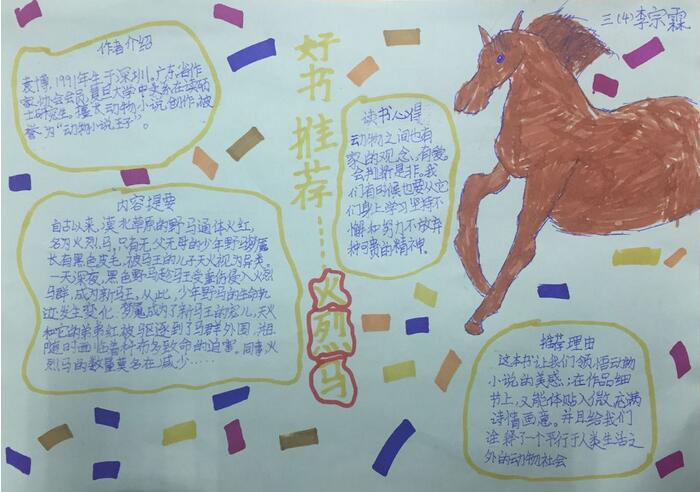 三(4)李宗霖
好书推荐……
火烈马
作者介绍
袁博,1991年生于深圳,广东省作
家协会会员,复旦大学中文系在读硕
士研究生,擅长动物小说创作,被
誉为“动物小说王子”。
内容提要
自古以来,漠北草原的野马通体火红,
名为火烈马,只有无父无母的少年野马梦魇
长有黑色皮毛,被马王的儿子天火视为异类。
一天深夜,黑色野马趁马王受重伤侵入火烈
马群,成为新马王,从此,少年野马的生命轨
迹发生变化,梦魇成为了新马王的宠儿,天火
和它的弟弟红被驱逐到了马群外围,祖
随时面临着种布多致命的迫害。同事火
烈马的数量莫名在减少……
读书心得
动物之间也有
家的观念、有爱
会判断是非,我
们有时候也要从它
们身上学习坚持不
懈和努力不放弃
种喷的精神。
推荐理由
这本书让我们领悟动物
小说的美感;在作品细
节上,又能体贴入微,充满
诗情画意。并且给我们
诠释了一个平行于人类生活之
外的动物社会